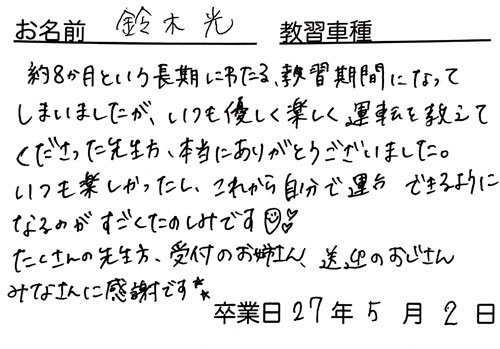 お名前 鈴木光 教習車種
約8か月という長期にわたる、教習期間になって
しまいましたが、いつも優しく楽しく運転を教えて
くださった先生方、本当にありがとうございました。
いつも楽しかったし、これから自分で運転できるように
なるのがすごくたのしみです
たくさんの先生方、受付のお姉さん、送迎のおじさん
みなさんに感謝です
卒業日 27年 5月 2日